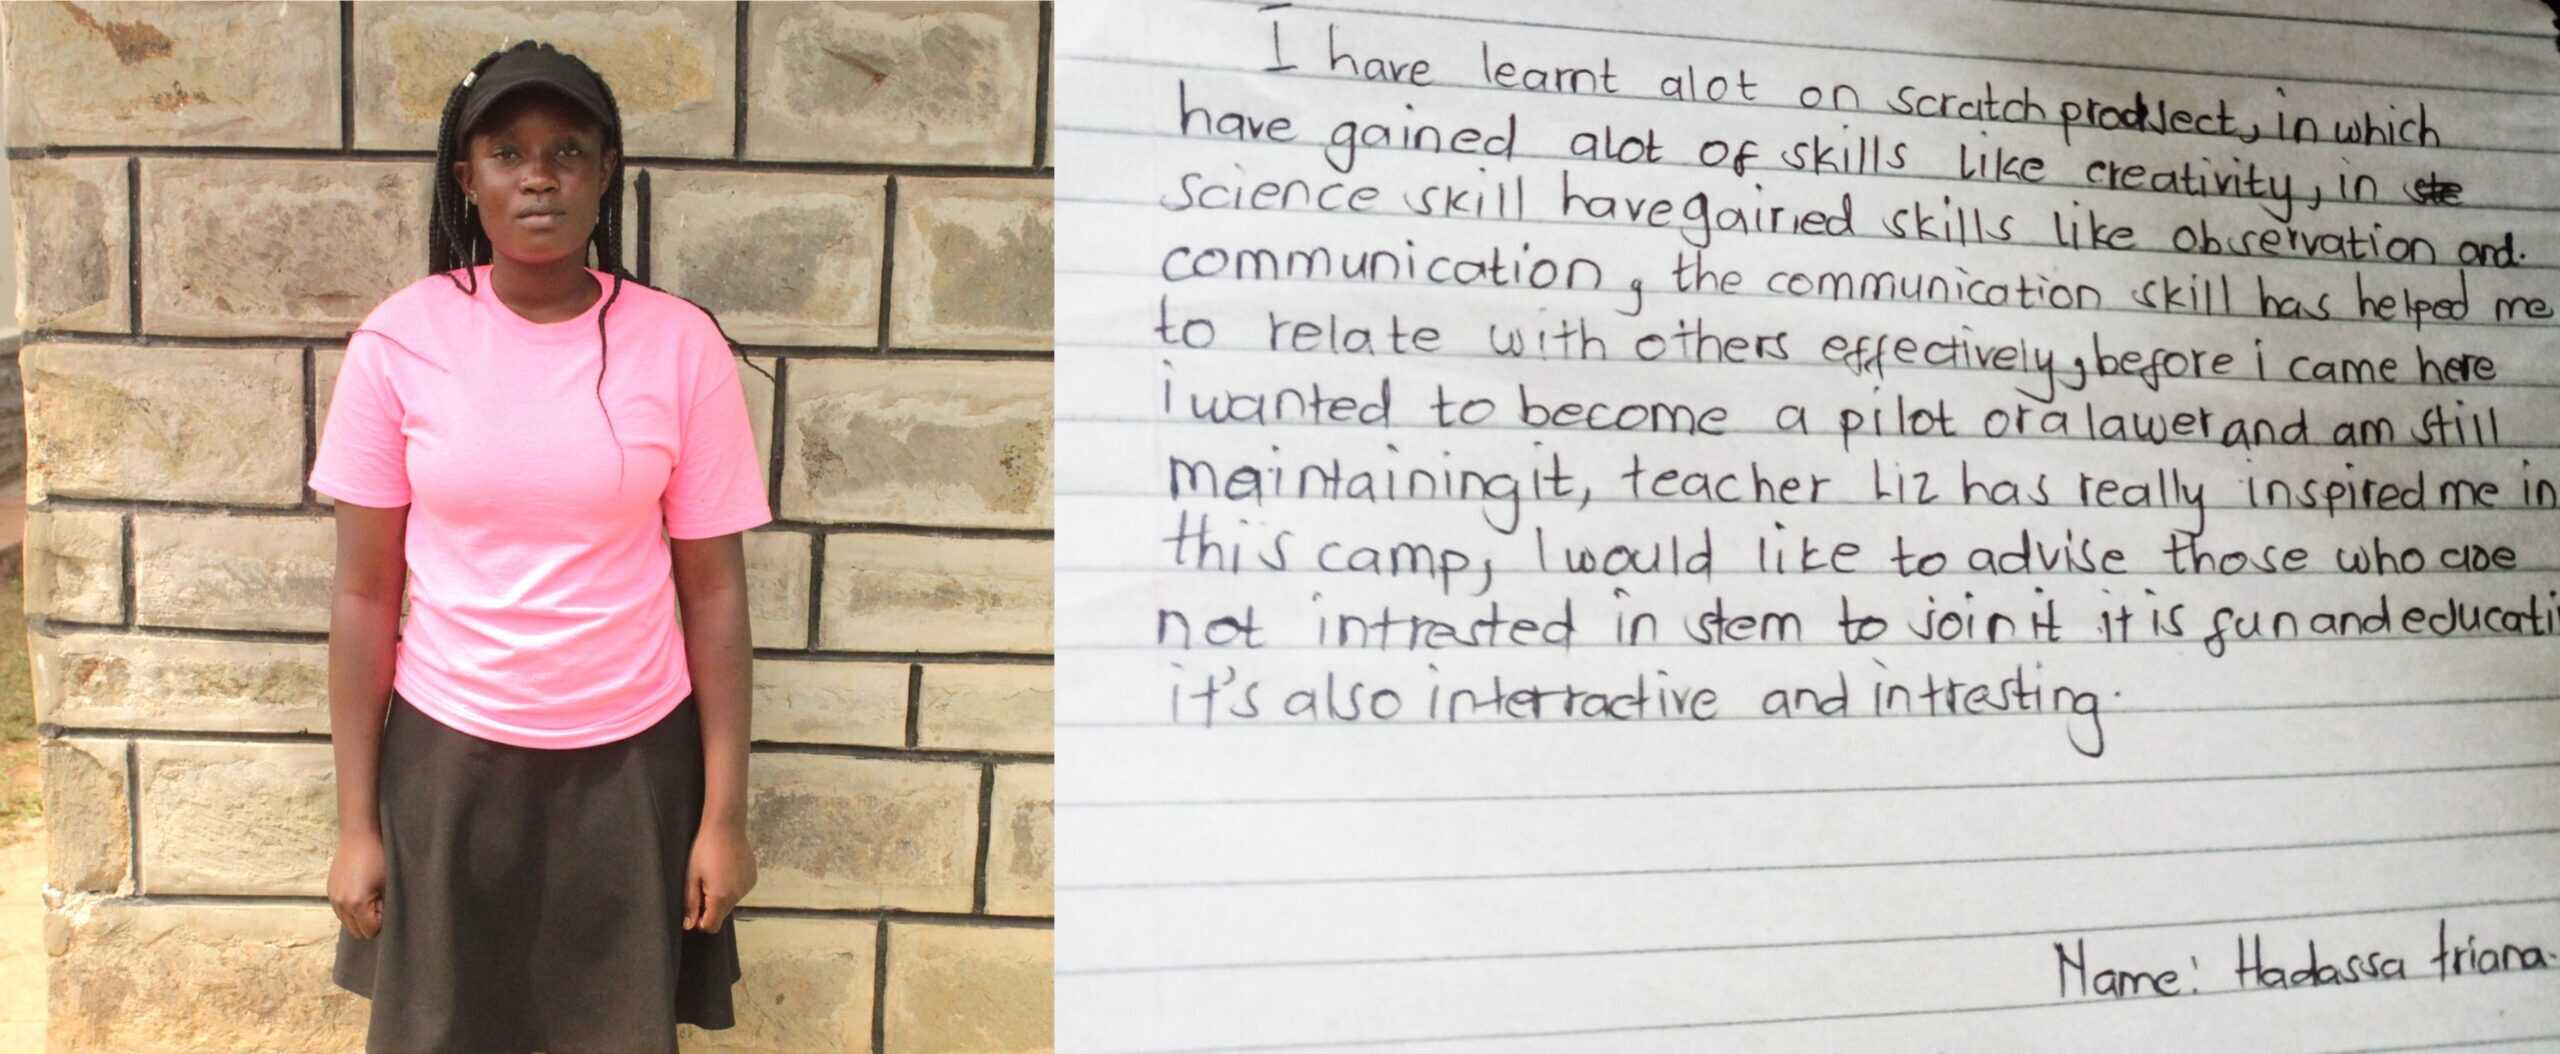 I have learnt alot on scratch prodject, in which
have gained alot of skills like creativity, in ste
science skill have gained skills like observation and.
communication, the communication skill has helped me
to relate with others effectively, before i came here
i wanted to become a pilot or a lawer and am still
maintaining it, teacher Liz has really inspired me in
this camp, I would like to advise those who are
not intrested in stem to join it it is fun and educati
it's also interractive and intresting.
Name: Hadassa triana.